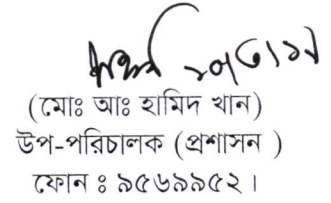 (মোঃ আঃ হামিদ খান)
উপ-পরিচালক (প্রশাসন )
ফোন ঃ ৯৫৬৯৯৫২।